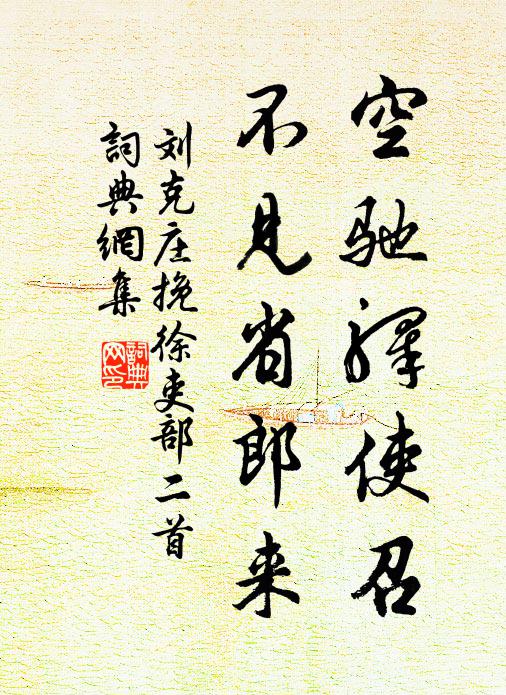 空驰驛使召
不見省郎来
刘克庄挽徐吏部二首
詞典網集
詞典網印